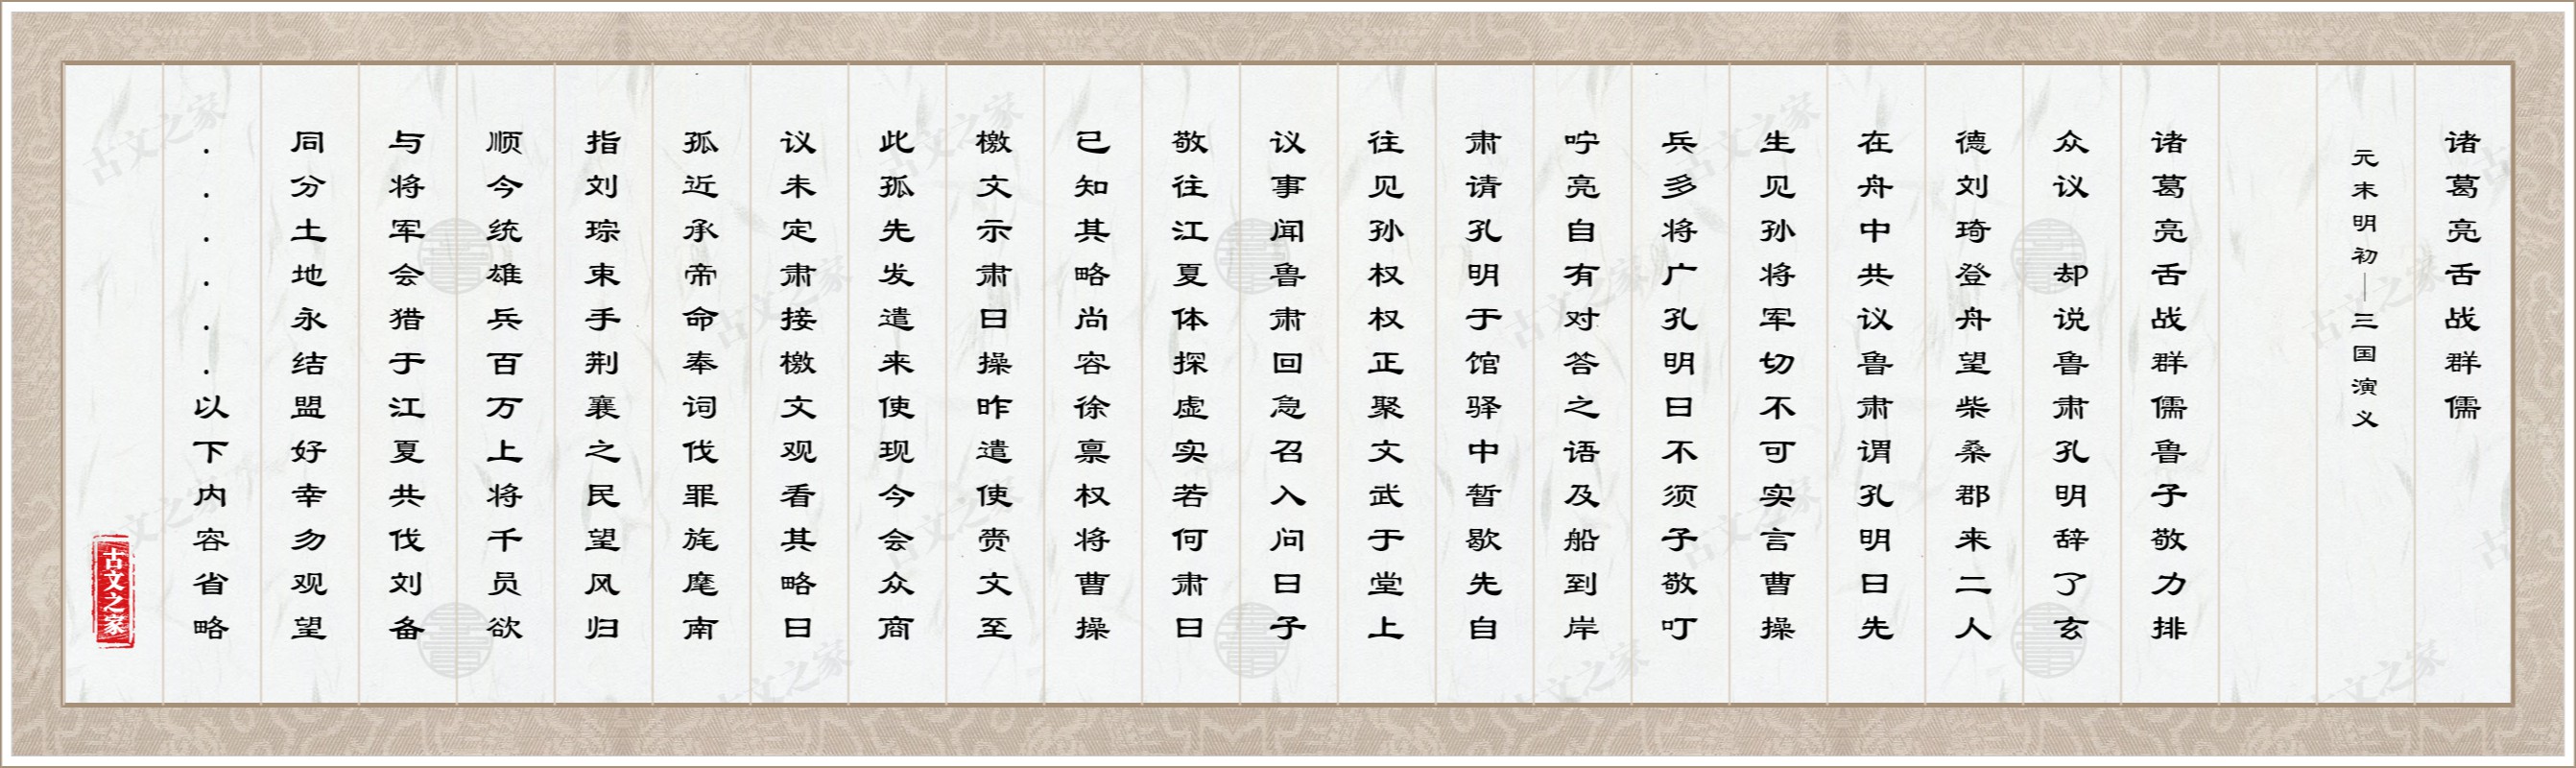 诸葛亮舌战群儒
元末明初—三国演义
诸葛亮舌战群儒鲁子敬力排
众议　却说鲁肃孔明辞了玄
德刘琦登舟望柴桑郡来二人
在舟中共议鲁肃谓孔明曰先
生见孙将军切不可实言曹操
兵多将广孔明曰不须子敬叮
咛亮自有对答之语及船到岸
肃请孔明于馆驿中暂歇先自
往见孙权权正聚文武于堂上
议事闻鲁肃回急召入问曰子
敬往江夏体探虚实若何肃曰
已知其略尚容徐禀权将曹操
檄文示肃曰操昨遣使赍文至
此孤先发遣来使现今会众商
议未定肃接檄文观看其略曰
孤近承帝命奉词伐罪旄麾南
指刘琮束手荆襄之民望风归
顺今统雄兵百万上将千员欲
与将军会猎于江夏共伐刘备
同分土地永结盟好幸勿观望
......以下内容省略
古文之家